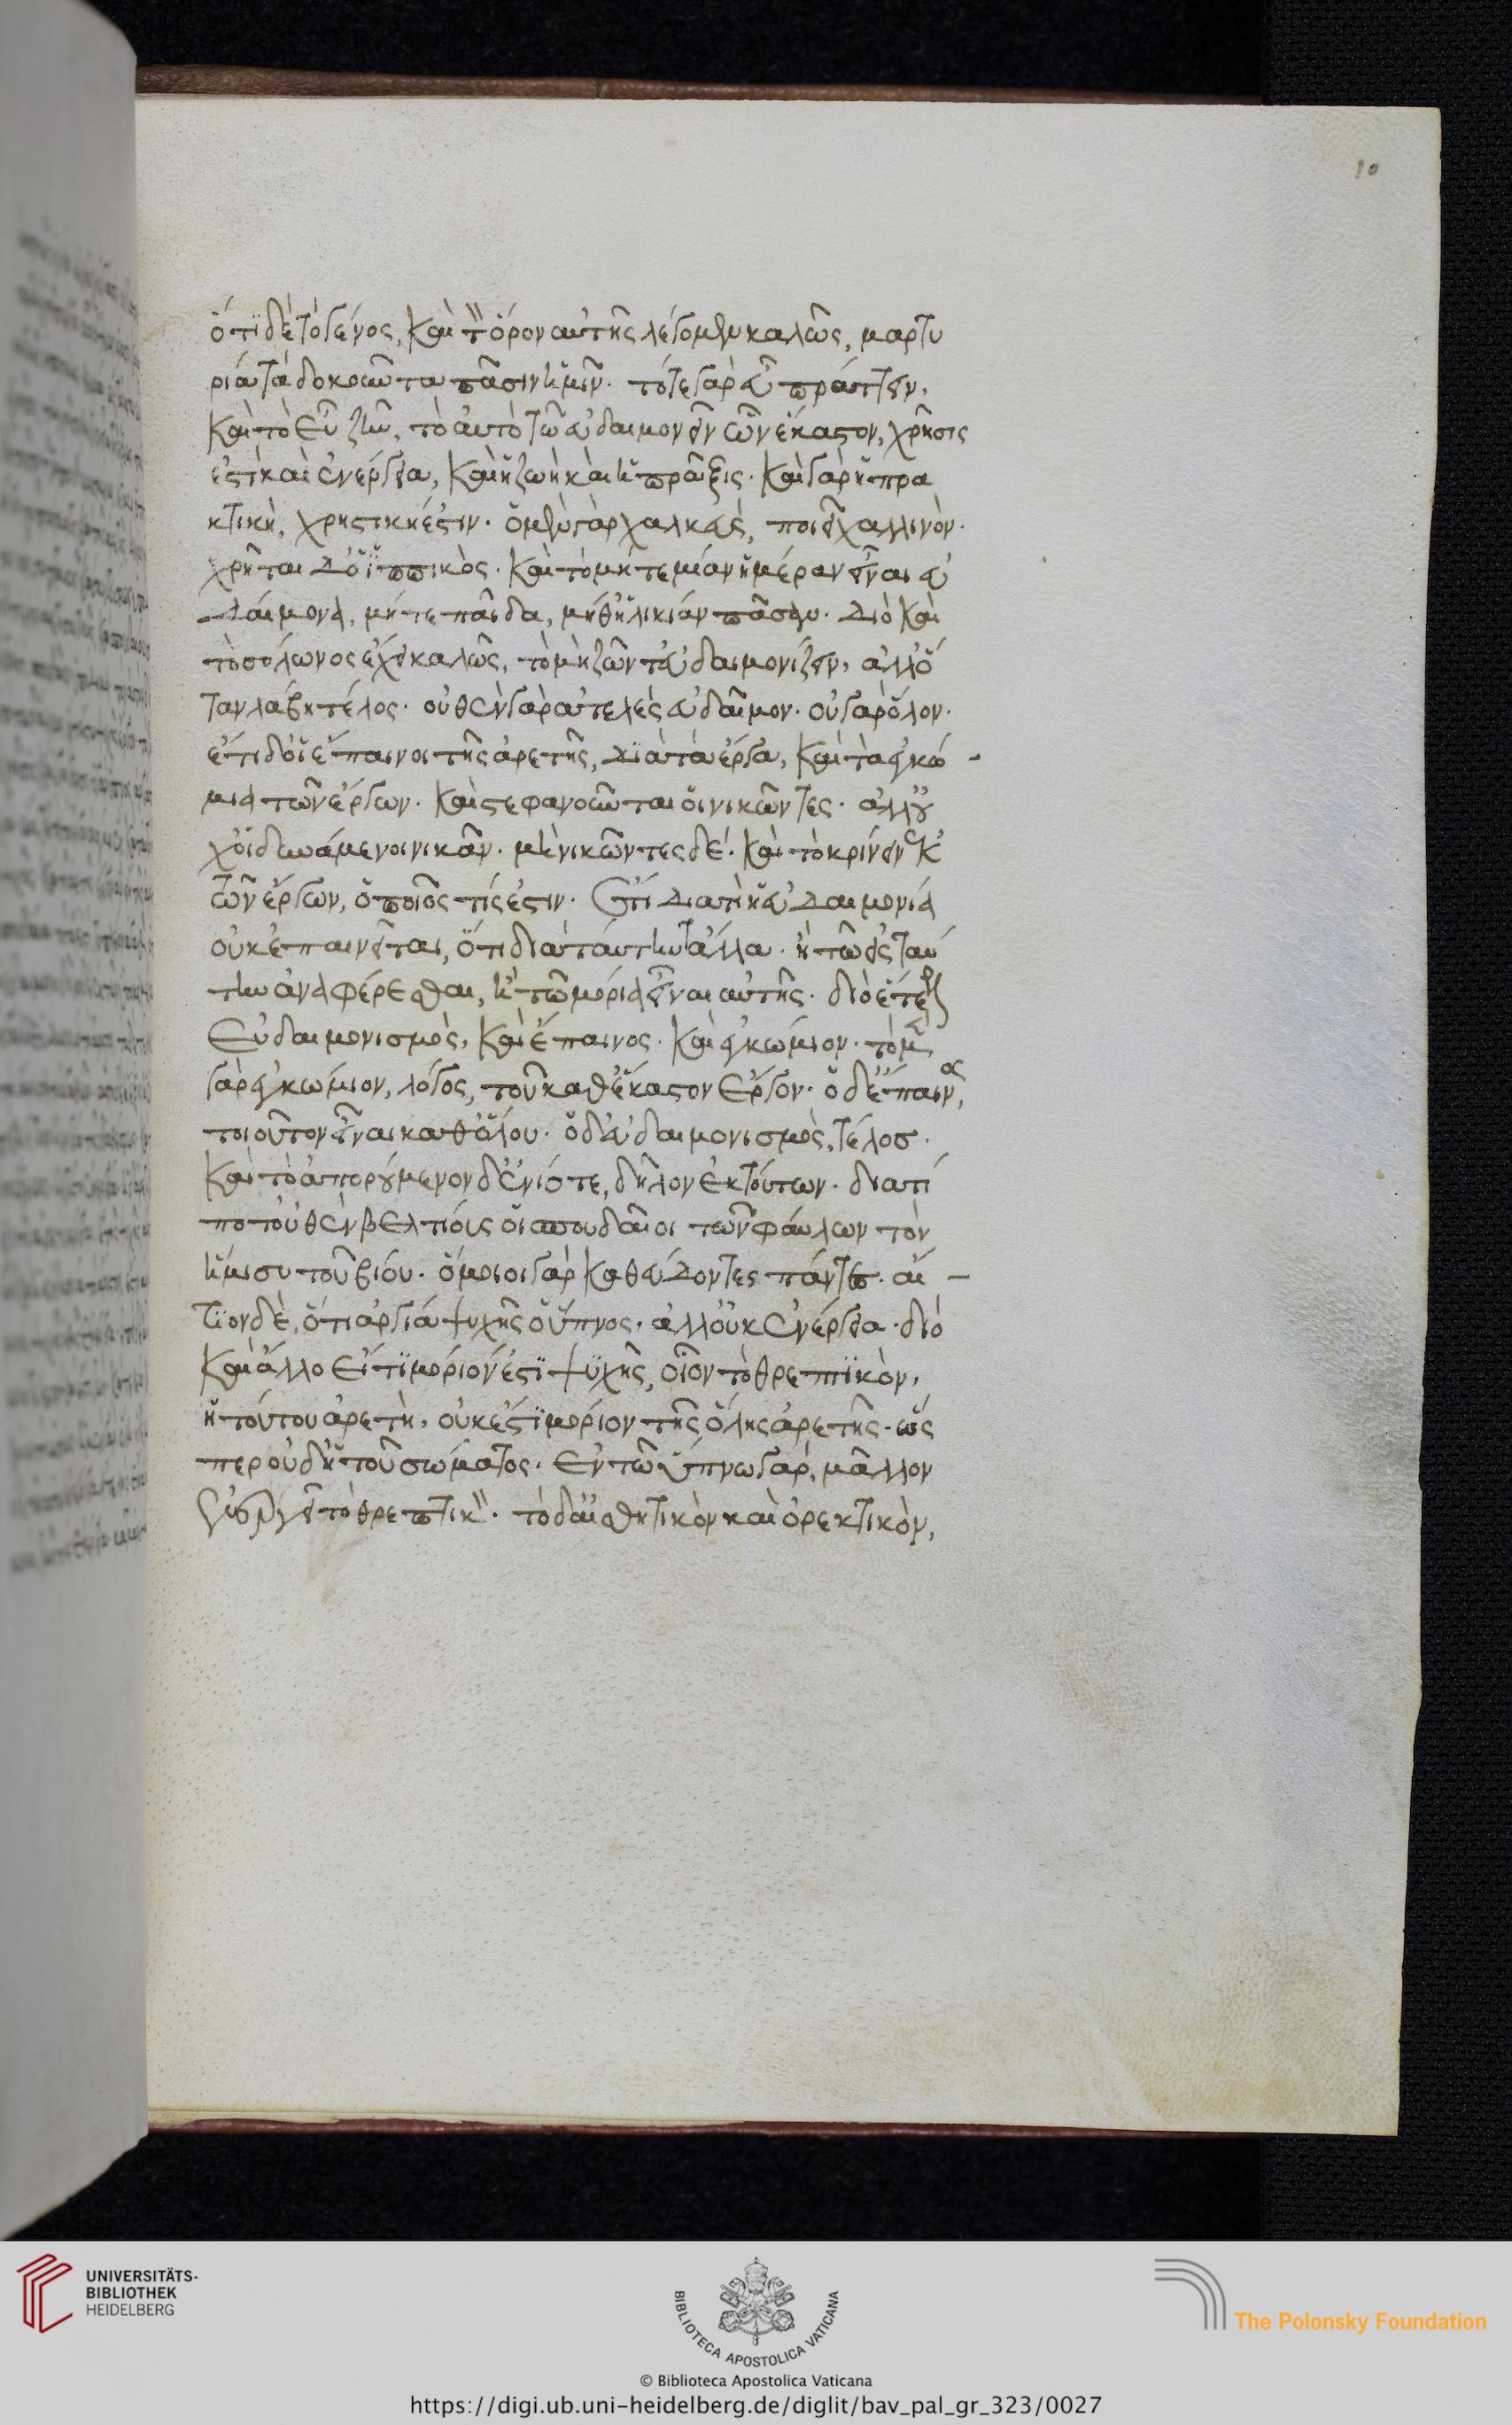 10
ὅτι δὲ τὸ γένος, καὶ τὸν ὅρον αὐτῆς λέγομεν καλῶς, μαρτύ
ρια τὰ δοκοῦντα πᾶσιν ἡμῖν. τό τε γὰρ εὖ πράττειν,
καὶ τὸ εὖ ζῆν, τὸ αὐτὸ τῶ εὐδαιμονεῖν ὧν ἕκαστον, χρῆσίς
ἐστι καὶ ἐνέργεια, καὶ ἡ ζωὴ καὶ ἡ πρᾶξις. καὶ γὰρ ἡ πρα
κτικὴ, χρηστικὴ ἐστιν. ὁ μὲν γὰρ χαλκεὺς, ποιεῖ χαλινόν.
χρῆται δ' ὁ ἱππικός. καὶ τὸ μήτε μίαν ἡμέραν εἶναι εὐ
δαίμονα, μήτε παῖδα, μήθ' ἡλικίαν πᾶσαν. διὸ καὶ
τὸ σόλωνος ἔχει καλῶς, τὸ μὴ ζῶντ' εὐδαιμονίζειν, ἀλλ' ὅ
ταν λάβη τέλος. οὐθὲν γὰρ ἀτελὲς εὔδαιμον. οὐ γὰρ ὅλον.
ἔτι δ' οἱ ἔπαινοι τῆς ἀρετῆς, διὰ τὰ ἔργα, καὶ τὰ ἐγκώ -
μια τῶν ἔργων. καὶ στεφανοῦνται οἱ νικῶντες. ἀλλ' οὐ
χ' οἱ δυνάμενοι νικᾶν. μὴ νικῶντες δέ. καὶ τὸ κρίνειν ἐκ
τῶν ἔργων, ὁποῖος τίς ἐστιν. ἔτι διατί ἡ εὐδαιμονία
οὐκ ἐπαινεῖται, ὅτι διὰ ταύτην τἆλλα. ἢ τῶ εἰς ταύ
την ἀναφέρεσθαι, ἢ τῶ μόρια εἶναι αὐτῆς. διὸ ἕτερον
εὐδαιμονισμὸς, καὶ ἔπαινος. καὶ ἐγκώμιον. τὸ μὲν
γὰρ ἐγκώμιον, λόγος, τοῦ καθ' ἕκαστον ἔργον. ὁ δ' ἔπαινος,
τοιοῦτον εἶναι καθόλου. ὁ δ' εὐδαιμονισμὸς, τέλος.
καὶ τὸ ἀπορούμενον δ' ἐνίοτε, δῆλον ἐκ τούτων. διατί
ποτ' οὐθὲν βελτίους οἱ σπουδαῖοι τῶν φαύλων τὸν
ἥμισυ τοῦ βίου. ὅμοιοι γὰρ καθεύδοντες πάντες. αἴ -
τιον δὲ, ὅτι ἀργία ψυχῆς ὁ ὕπνος, ἀλλ' οὐκ ἐνέργεια. διὸ
καὶ ἄλλο εἴ τι μόριόν ἐστι ψυχῆς, οἷον τὸ θρεπτικὸν,
ἡ τούτου ἀρετὴ, οὐκ ἔστι μόριον τῆς ὅλης ἀρετῆς. ὥς
περ οὐδ' ἡ τοῦ σώματος. ἐν τῶ ὕπνω γὰρ, μᾶλλον
ἐνεργεῖ τὸ θρεπτικόν. τὸ δ' αἰσθητικὸν καὶ ὀρεκτικὸν,
UNIVERSITÄTS-
BIBLIOTHEK
HEIDELBERG
BIBLIOTECA APOSTOLICA VATICANA
The Polonsky Foundation
© Biblioteca Apostolica Vaticana
https://digi.ub.uni-heidelberg.de/diglit/bav_pal_gr_323/0027